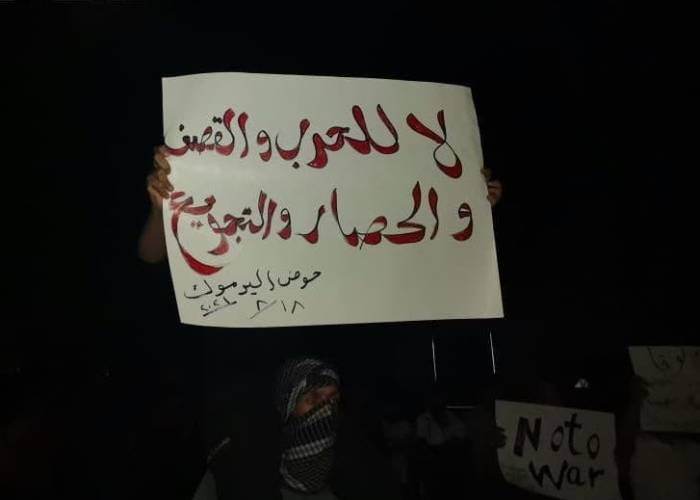 لا للحرب والقصف
والحصار والتجويع
حوض اليرموك
٢٠٢١/٨/١٨
No to
war